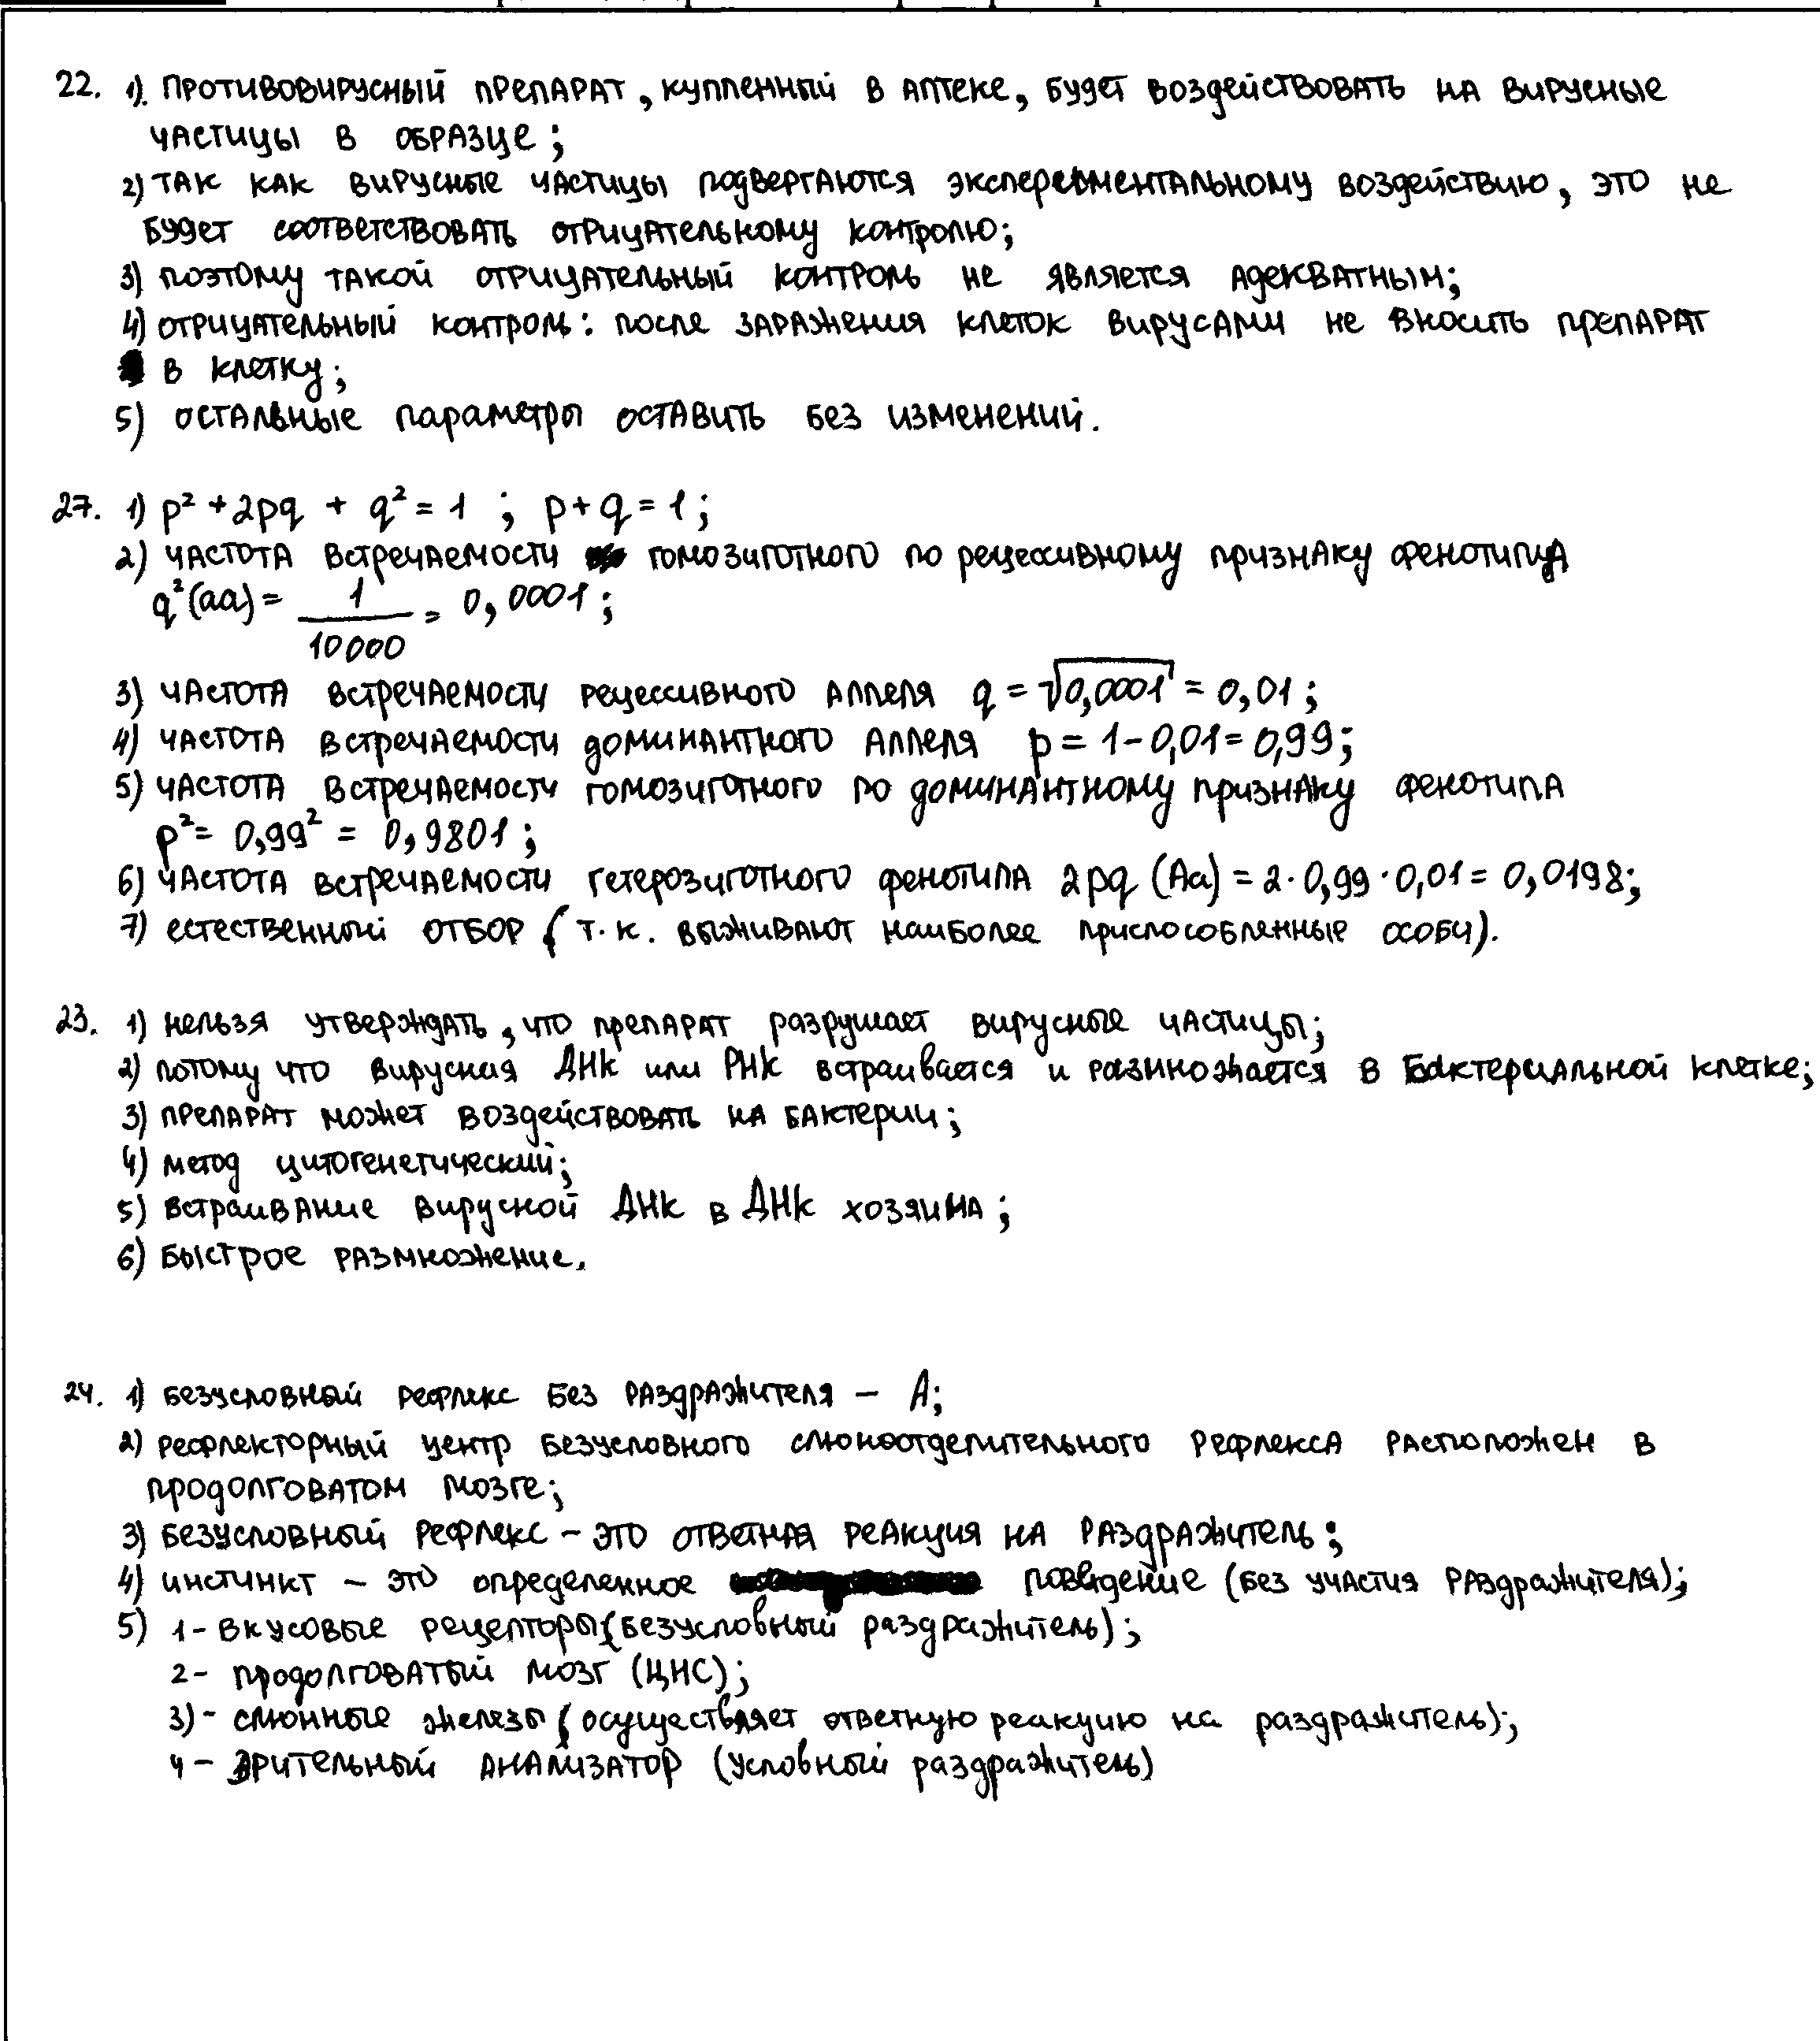 22. 1). Противовирусный препарат, купленный в аптеке, будет воздействовать на вирусные
частицы в образце;
2) так как вирусные частицы подвергаются экспериментальному воздействию, это не
будет соответствовать отрицательному контролю;
3) поэтому такой отрицательный контроль не является адекватным;
4) отрицательный контроль: после заражения клеток вирусами не вносить препарат
в клетку;
5) остальные параметры оставить без изменений.
27. 1) p² + 2pq + q² = 1 ; p + q = 1;
2) частота встречаемости гомозиготного по рецессивному признаку фенотипа
q²(aa) = 1/10000 = 0,0001;
3) частота встречаемости рецессивного аллеля q = √0,0001 = 0,01;
4) частота встречаемости доминантного аллеля p = 1 - 0,01 = 0,99;
5) частота встречаемости гомозиготного по доминантному признаку фенотипа
p² = 0,99² = 0,9801;
6) частота встречаемости гетерозиготного фенотипа 2pq (Aa) = 2 · 0,99 · 0,01 = 0,0198;
7) естественный отбор (т.к. выживают наиболее приспособленные особи).
23. 1) нельзя утверждать, что препарат разрушает вирусные частицы;
2) потому что вирусная ДНК или РНК встраивается и размножается в бактериальной клетке;
3) препарат может воздействовать на бактерии;
4) метод цитогенетический;
5) встраивание вирусной ДНК в ДНК хозяина;
6) быстрое размножение.
24. 1) безусловный рефлекс без раздражителя – А;
2) рефлекторный центр безусловного слюноотделительного рефлекса расположен в
продолговатом мозге;
3) безусловный рефлекс – это ответная реакция на раздражитель;
4) инстинкт – это определенное поведение (без участия раздражителя);
5) 1 - вкусовые рецепторы (безусловный раздражитель);
2 - продолговатый мозг (ЦНС);
3) - слюнные железы (осуществляет ответную реакцию на раздражитель);
4 - зрительный анализатор (условный раздражитель)